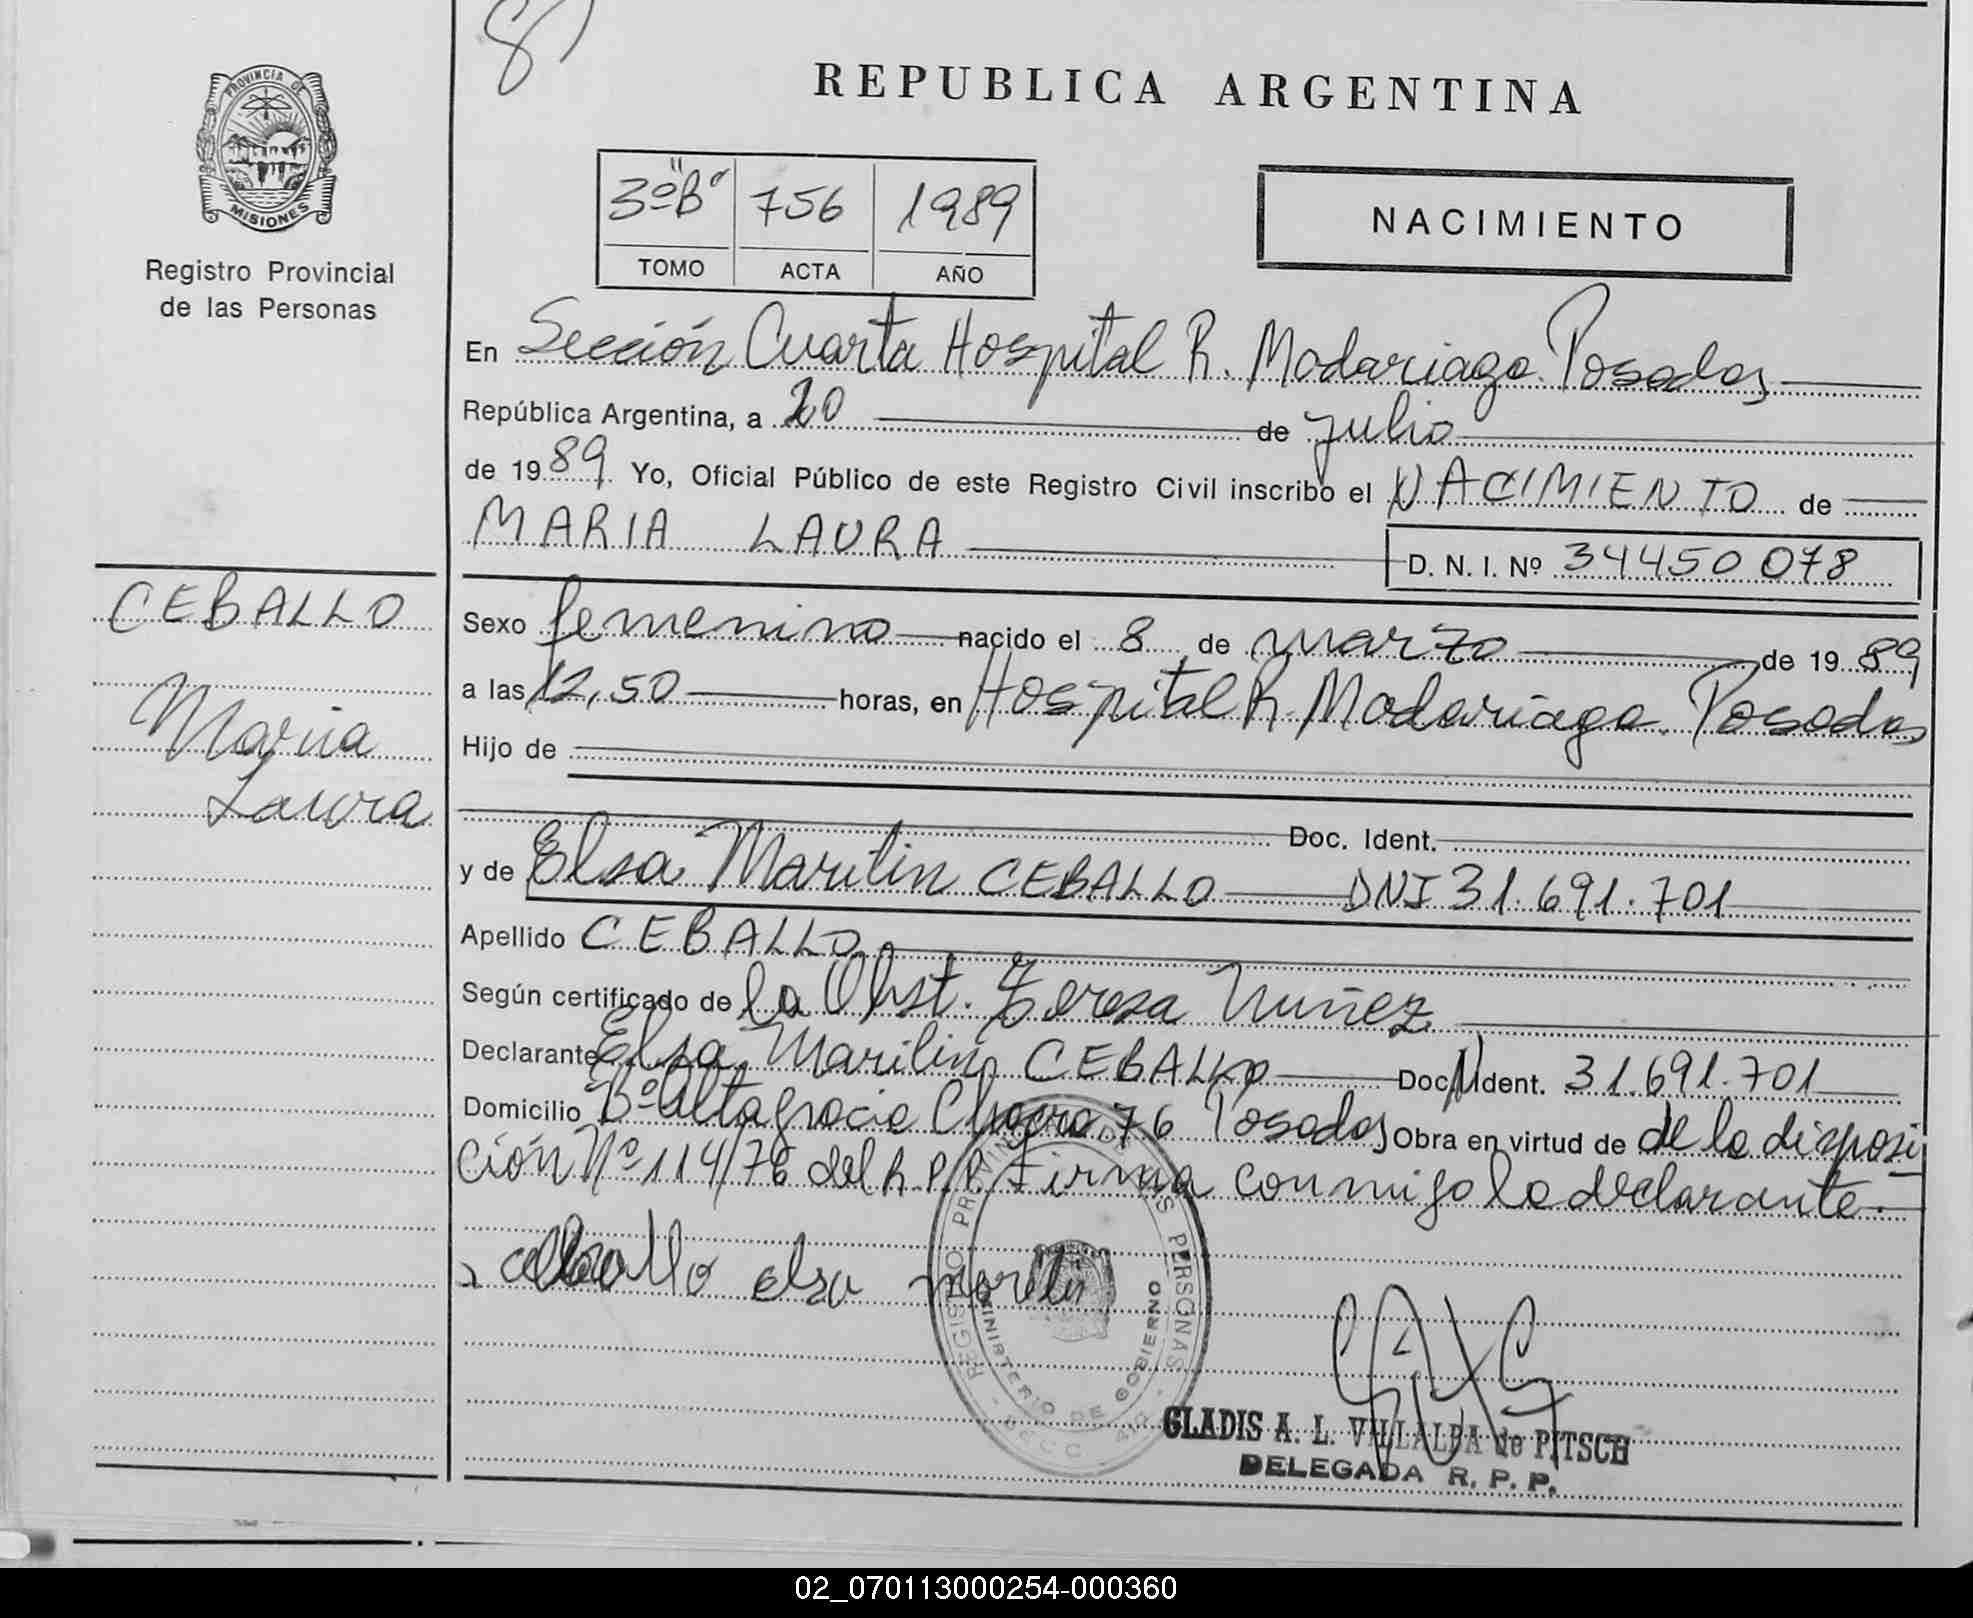 8
PROVINCIA DE
MISIONES
Registro Provincial
de las Personas
REPUBLICA ARGENTINA
3º"B" 756 1989
TOMO ACTA AÑO
NACIMIENTO
En Sección Cuarta Hospital R. Madariaga. Posadas
República Argentina, a 20 de julio
de 1989 Yo, Oficial Público de este Registro Civil inscribo el NACIMIENTO de
MARIA LAURA
D. N. I. Nº 34450078
CEBALLO
Maria
Laura
Sexo femenino nacido el 8 de marzo de 1989
a las 12,50 horas, en Hospital R. Madariaga. Posadas
Hijo de
Doc. Ident.
y de Elsa Marilin CEBALLO DNI 31.691.701
Apellido CEBALLO
Según certificado de la Obst. Teresa Nuñez
Declarante Elsa Marilin CEBALLO Doc. Ident. 31.691.701
Domicilio Bº Altagracia Chacra 76 Posadas Obra en virtud de de la disposi
ción Nº 114/76 del R.P.P. Firma conmigo la declarante.-
ceballo elsa marilin
REGISTRO PROVINCIAL DE LAS PERSONAS
MINISTERIO DE GOBIERNO
SECC. 4a
GLADIS A. L. VILLALBA de PITSCH
DELEGADA R. P. P.
02_070113000254-000360